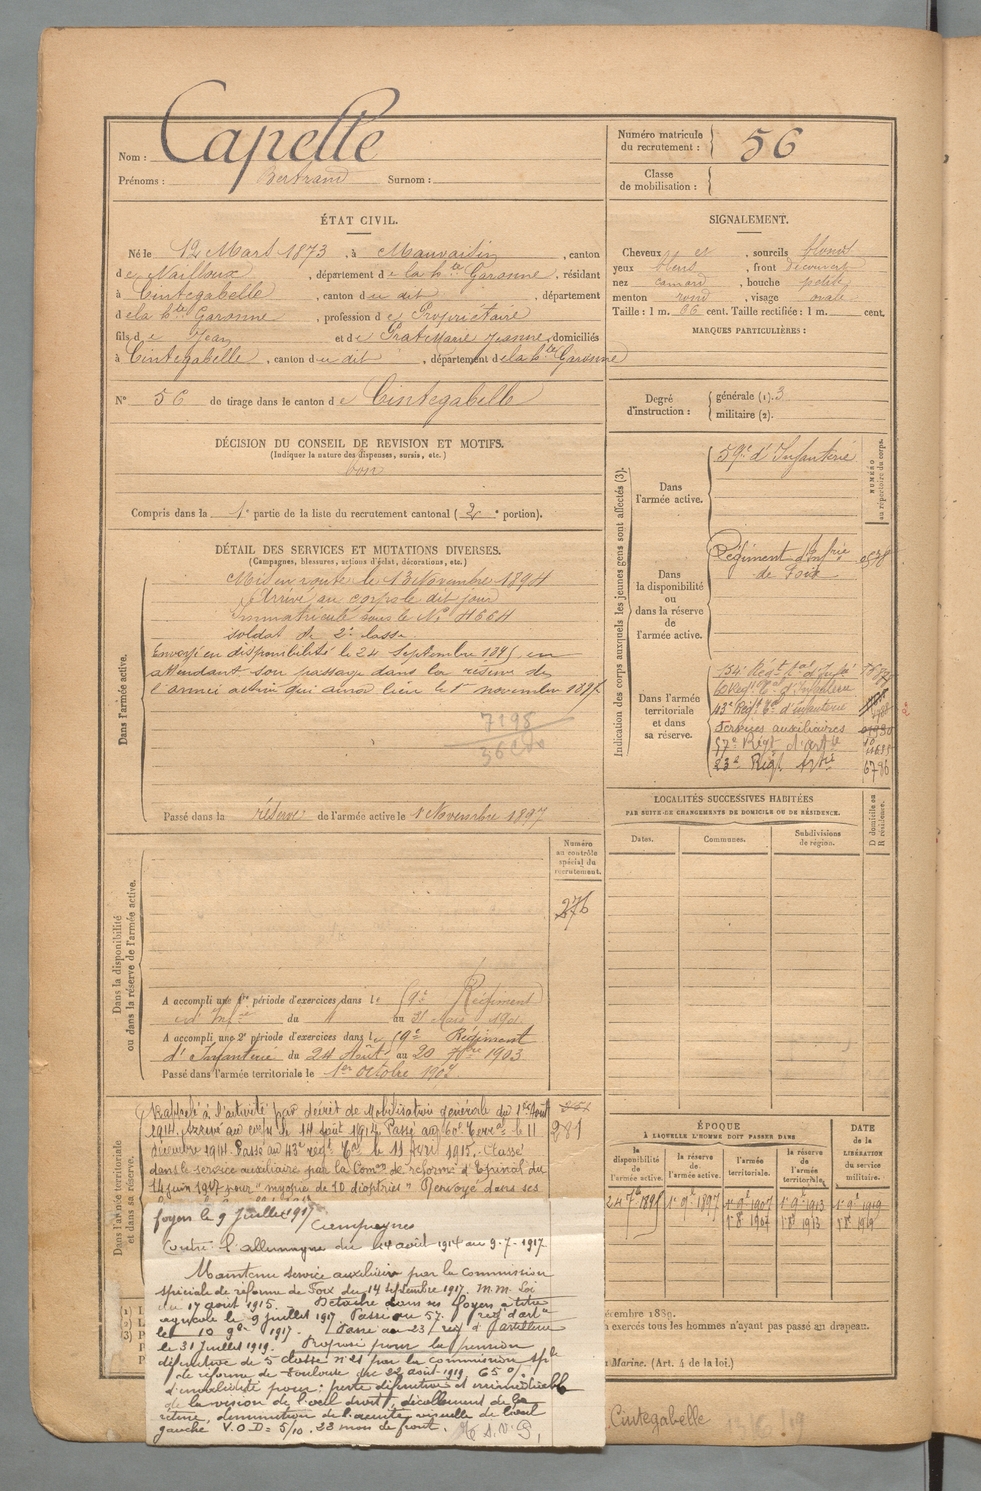 Nom : Capelle
Prénoms : Bertrand Surnom :
Numéro matricule du recrutement : 56
Classe de mobilisation :
ÉTAT CIVIL.
Né le 12 Mars 1873, à Mauvaisin, canton
de Nailloux, département de la hte Garonne, résidant
à Cintegabelle, canton du dit, département
de la hte Garonne, profession de Propriétaire
fils de Jean et de Prat Marie Jeanne, domiciliés
à Cintegabelle, canton du dit, département de la hte Garonne
N° 56 de tirage dans le canton de Cintegabelle
SIGNALEMENT.
Cheveux et, sourcils blonds
yeux bleus, front découvert
nez camard, bouche petite
menton rond, visage ovale
Taille : 1 m. 66 cent. Taille rectifiée : 1 m. cent.
MARQUES PARTICULIÈRES :
Degré d'instruction : générale (1). 3
militaire (2).
DÉCISION DU CONSEIL DE REVISION ET MOTIFS.
(Indiquer la nature des dispenses, sursis, etc.)
bon
Compris dans la 1e partie de la liste du recrutement cantonal (2e portion).
DÉTAIL DES SERVICES ET MUTATIONS DIVERSES.
(Campagnes, blessures, actions d'éclat, décorations, etc.)
Dans l'armée active.
Mis en route le 13 Novembre 1894
Arrivé au corps le dit jour
Immatriculé sous le No 4664
soldat de 2e classe
Envoyé en disponibilité le 24 Septembre 1895 en
attendant son passage dans la réserve de
l'armée active qui aura lieu le 1er novembre 1897
7195
36
Passé dans la réserve de l'armée active le 1 Novembre 1897
Indication des corps auxquels les jeunes gens sont affectés (3).
NUMÉRO au répertoire du corps.
Dans l'armée active.
59e d'Infanterie
Dans la disponibilité ou dans la réserve de l'armée active.
Régiment d'Infrie
de Foix
Dans l'armée territoriale et dans sa réserve.
134e Régt tal d'Infie
43e Régt Tal d'Infanterie
Services auxiliaires
57e Régt d'artie
23e Régt Artie 6796
LOCALITÉS SUCCESSIVES HABITÉES
PAR SUITE DE CHANGEMENTS DE DOMICILE OU DE RÉSIDENCE.
Dates. Communes. Subdivisions de région.
D domicile ou R résidence.
Numéro au contrôle spécial du recrutement.
276
Dans la disponibilité ou dans la réserve de l'armée active.
A accompli une 1re période d'exercices dans le 59e Régiment
d'Infie du 4 au 31 Mars 1901
A accompli une 2e période d'exercices dans le 59e Régiment
d'Infanterie du 24 Août au 20 7bre 1903
Passé dans l'armée territoriale le 1er octobre 1907
Dans l'armée territoriale et dans sa réserve.
Rappelé à l'activité par décret de Mobilisation générale du 1er Août
1914. Arrivé au corps le 14 août 1914. Passé au 60e Terral le 11
décembre 1914. Passé au 43e régt Tal le 11 1915. Classé
dans le service auxiliaire par la Comon de réforme d'Epinal du
14 juin 1917 pour "myopie de 10 dioptries" Renvoyé dans ses
281
foyers le 9 Juillet 1917
Campagnes
Contre l'allemagne du 14 août 1914 au 9-7-1917
Maintenu service auxiliaire par la commission
spéciale de réforme de Foix du 14 septembre 1917. M.M. Loi
du 17 aout 1915. Détaché dans ses foyers à titre
agricole le 9 juillet 1917 Passé au 57e reg d'artie
le 10 9bre 1917. Passé au 23e reg d'artillerie
le 31 Juillet 1919. Proposé pour la pension
définitive de 5e classe n° 21 par la commission sple
de réforme de Toulouse du 22 août 1919 65 %
d'invalidité pour : perte définitive et irrémédiable
de la vision de l'oeil droit, décollement de la
rétine, diminution de l'acuité visuelle de l'oeil
gauche V.O.D = 5/10. 33 mois de front.
ÉPOQUE
À LAQUELLE L'HOMME DOIT PASSER DANS
la disponibilité de l'armée active. la réserve de l'armée active. l'armée territoriale. la réserve de l'armée territoriale.
DATE de la LIBÉRATION du service militaire.
24 7bre 1895 1er 9bre 1897 1er 9bre 1907 1er 9bre 1913 1er 9bre 1919
1er 8bre 1907 1er 8bre 1913 1er 8bre 1919
écembre 1889.
exercés tous les hommes n'ayant pas passé au drapeau.
Marine. (Art. 4 de la loi.)
Cintegabelle